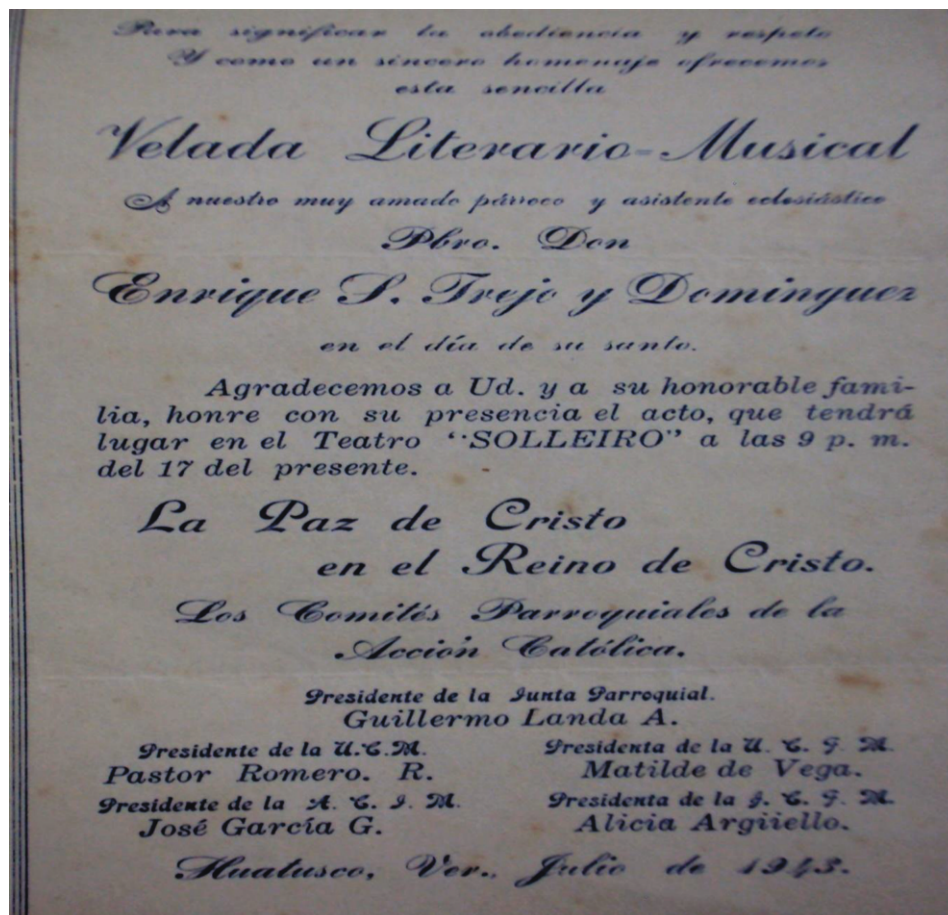 Para significar la obediencia y respeto
Y como un sincero homenaje ofrecemos
esta sencilla
Velada Literario-Musical
A nuestro muy amado párroco y asistente eclesiástico
Pbro. Don
Enrique S. Trejo y Dominguez
en el día de su santo.
Agradecemos a Ud. y a su honorable fami-
lia, honre con su presencia el acto, que tendrá
lugar en el Teatro "SOLLEIRO" a las 9 p. m.
del 17 del presente.
La Paz de Cristo
en el Reino de Cristo.
Los Comités Parroquiales de la
Acción Católica.
Presidente de la Junta Parroquial.
Guillermo Landa A.
Presidente de la U.C.M. Presidenta de la U. C. F. M.
Pastor Romero. R. Matilde de Vega.
Presidente de la A. C. J. M. Presidenta de la J. C. F. M.
José García G. Alicia Argüello.
Huatusco, Ver., Julio de 1943.